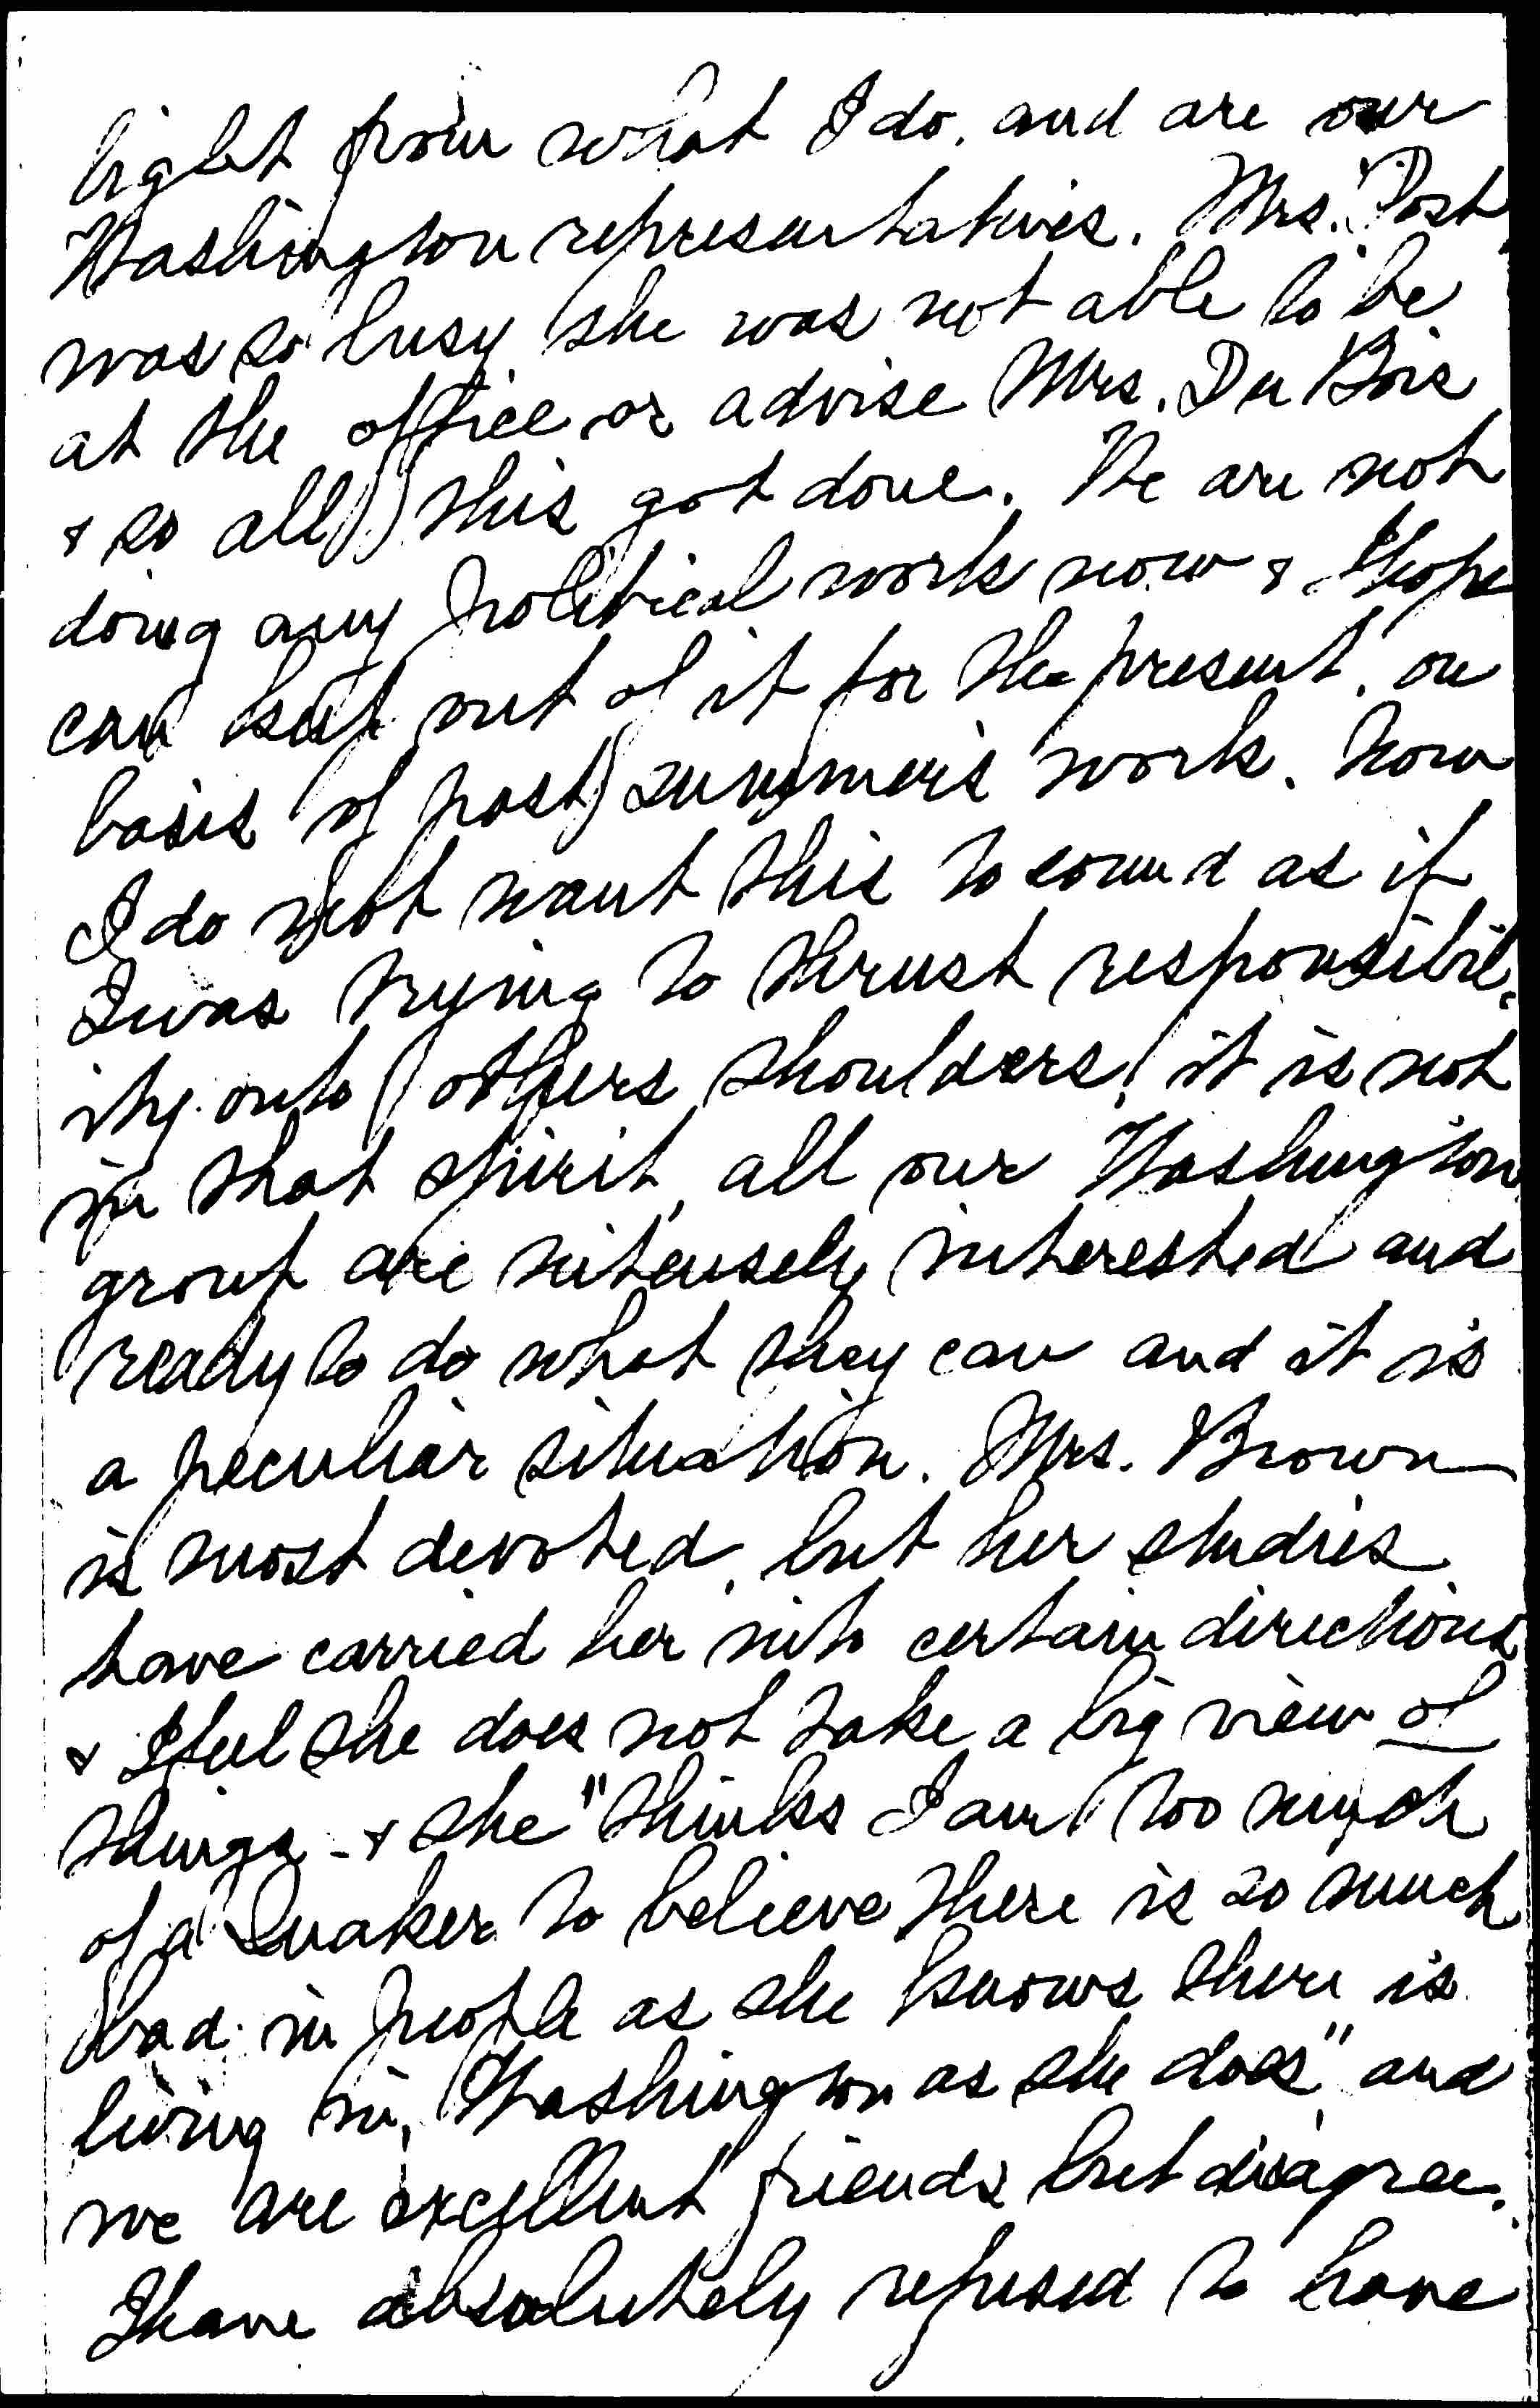 light from what I do, and are our
Washington representatives. Mrs. Post
was so busy she was not able to be
at the office or advise Mrs. Du Bois
& so all this got done. We are not
doing any political work now & I hope
can keep out of it for the present, on
basis of past summer's work. Now
I do not want this to sound as if
I was trying to thrust responsibil-
ity onto others shoulders, it is not
in that spirit, all our Washington
group are intensely interested and
ready to do what they can and it is
a peculiar situation. Mrs. Brown
is most devoted, but her studies
have carried her into certain directions
& I feel she does not take a big view of
things - & she "thinks I am too much
of a Quaker to believe there is so much
bad in people as she knows there is
living in Washington as she does" and
we are excellent friends but disagree.
I have absolutely refused to have